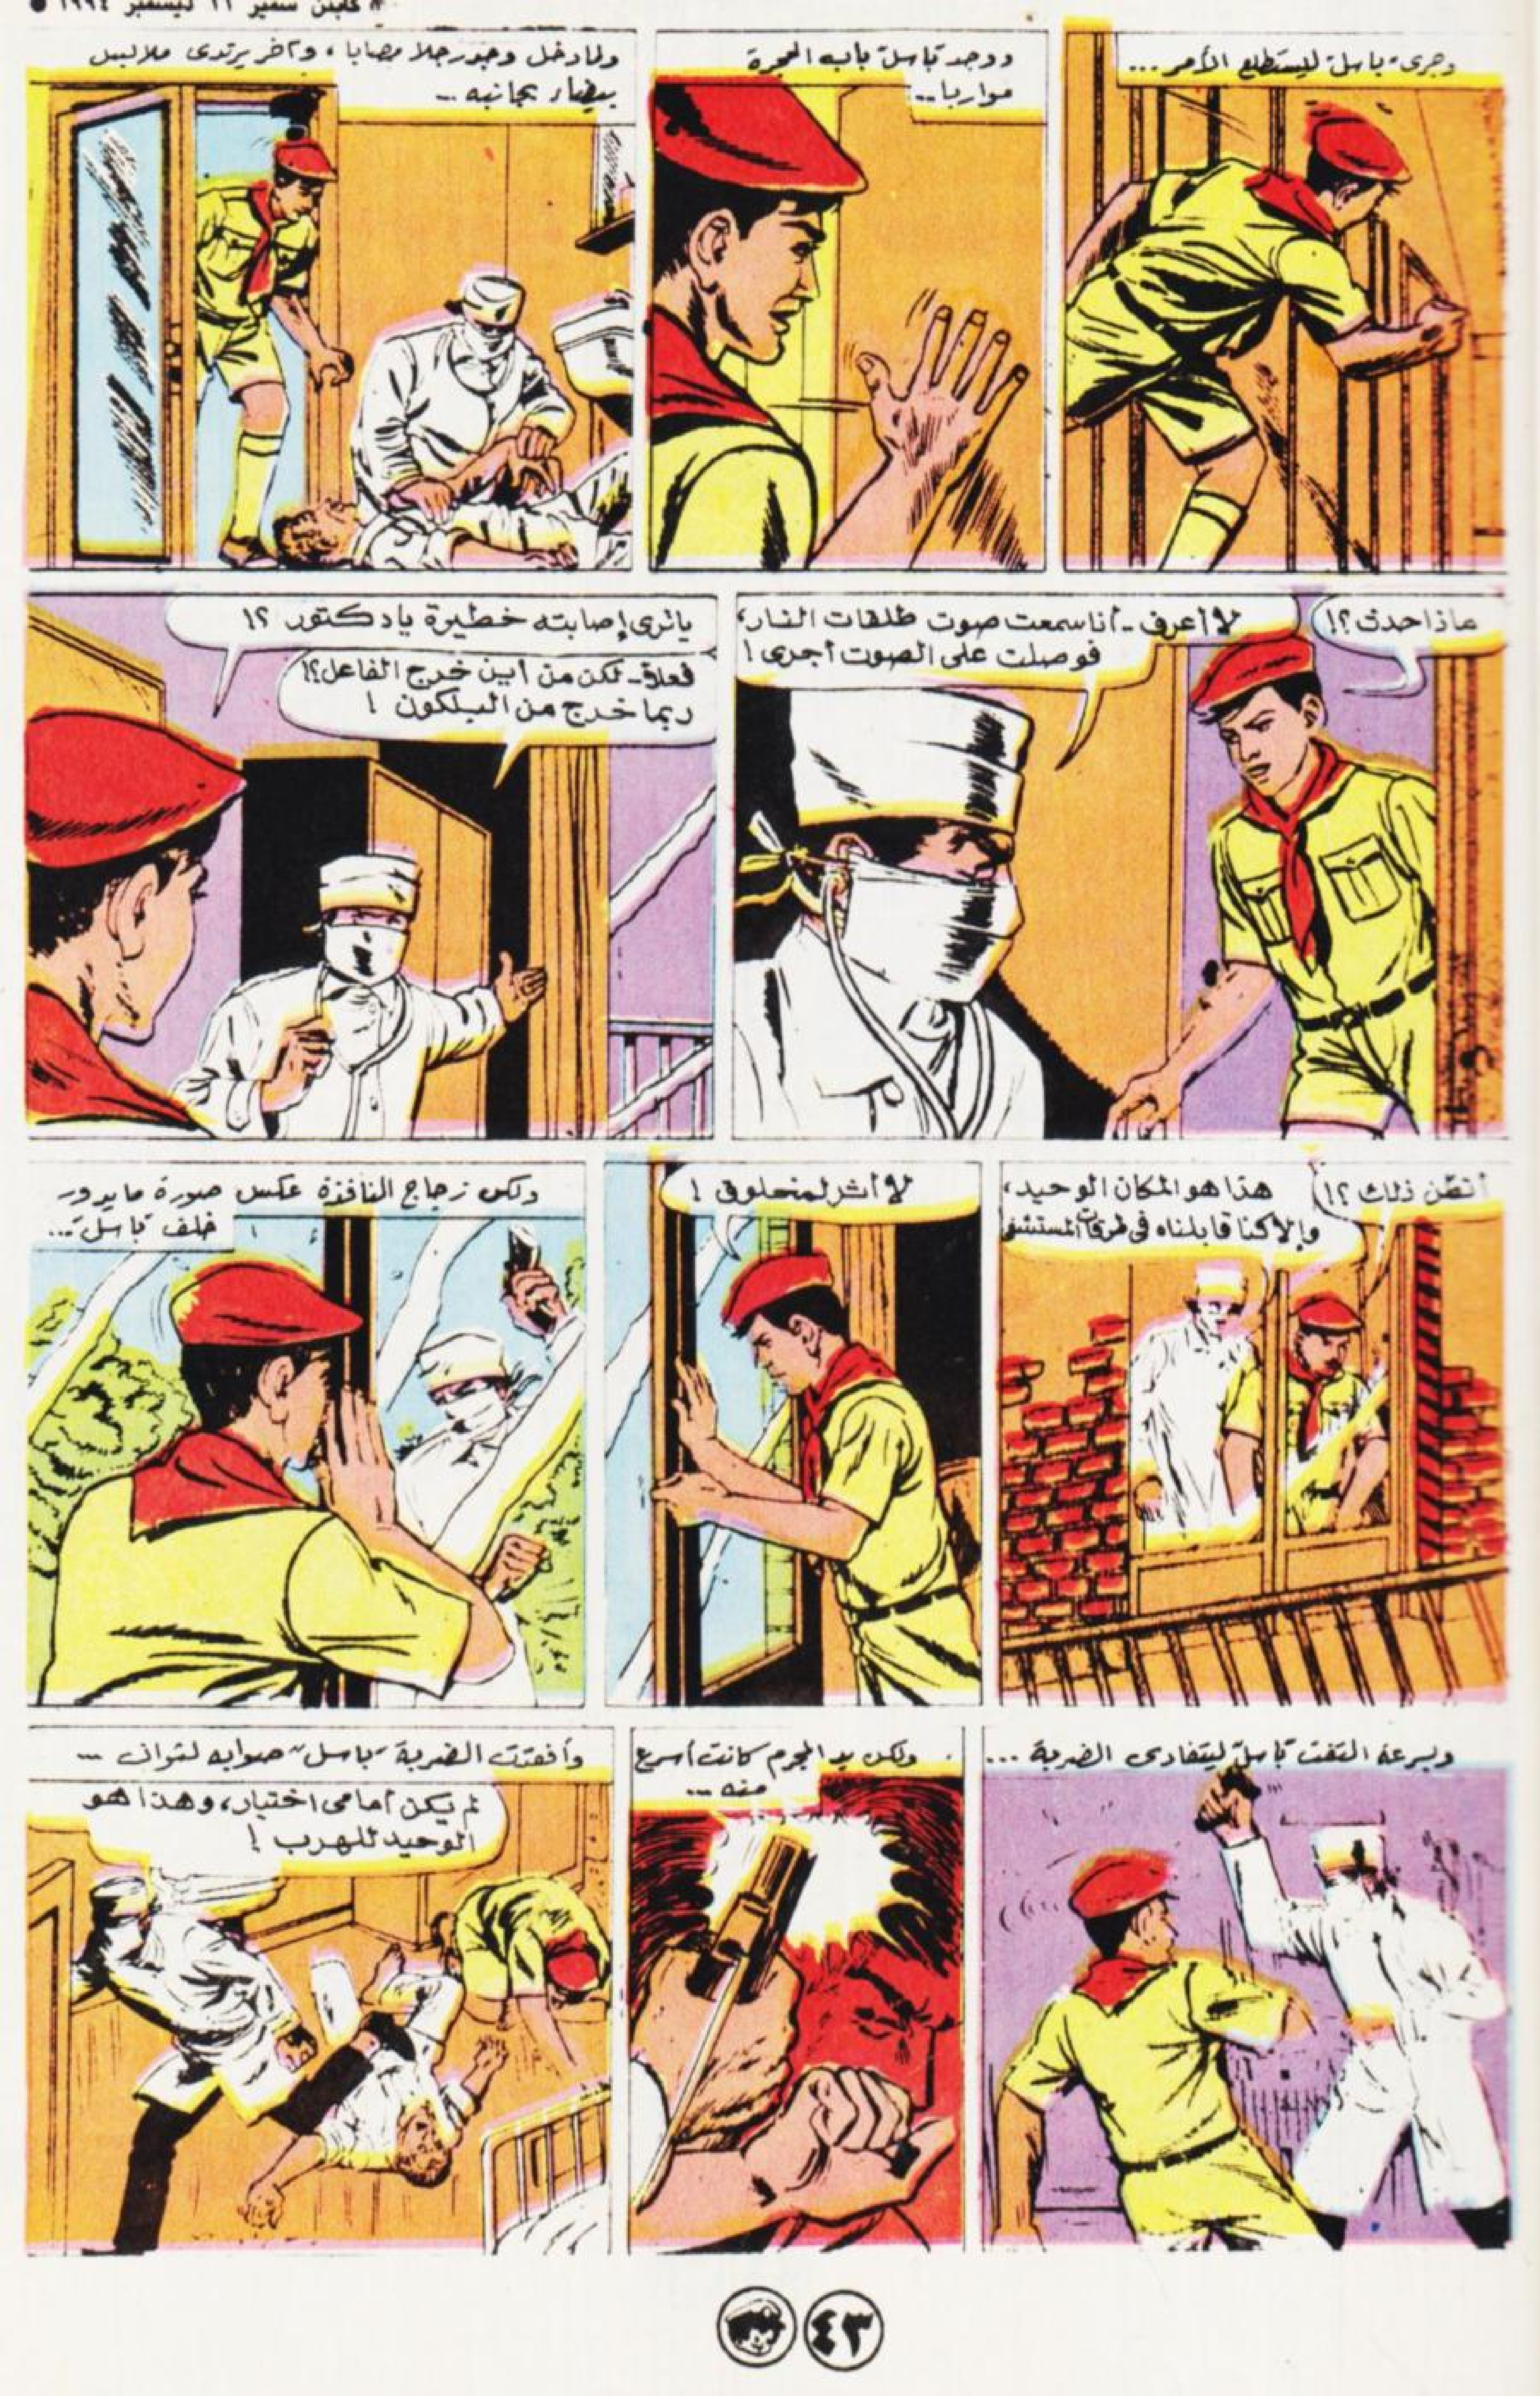 سمير ١١ ديسمبر ١٩٩٤
وجرى "باسل" ليستطلع الأمر ...
ووجد "باسل" باب الحجرة
مواربا ..
ولما دخل وجد رجلا مصابا، وآخر يرتدى ملابس
بيضاء بجانبه ..
ماذا حدث؟!
لا أعرف - أنا سمعت صوت طلقات النار،
فوصلت على الصوت أجرى!
ياترى إصابته خطيرة يا دكتور ؟!
فعلا - لكن من أين خرج الفاعل؟!
ربما خرج من البلكون !
أتظن ذلك ؟!
هذا هو المكان الوحيد،
وإلا كنا قابلناه فى طرقات المستشفى
لا أثر لمخلوق !
ولكن زجاج النافذة عكس صورة مايدور
خلف "باسل" ...
وبسرعة التفت "باسل" ليتفادى الضربة ...
ولكن يد المجرم كانت أسرع
منه ...
وأفقدت الضربة "باسل" صوابه لثوان ...
لم يكن أمامى اختيار، وهذا هو
الوحيد للهرب !
٤٣